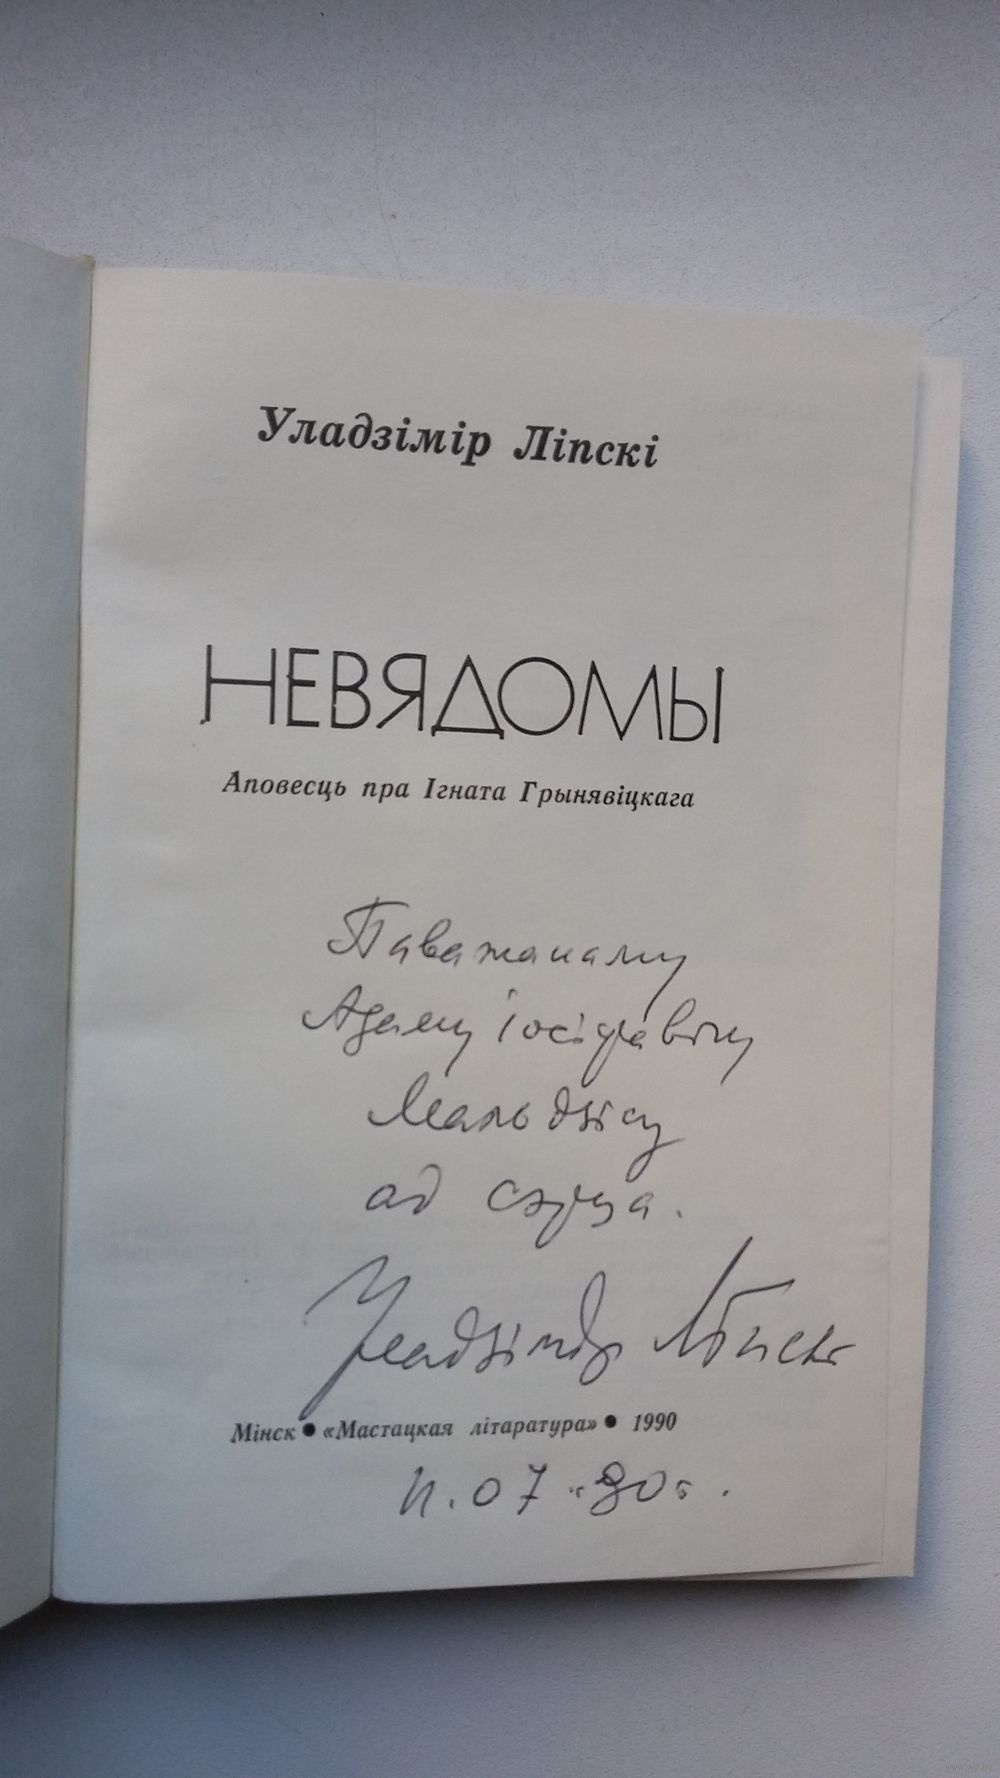 Уладзімір Ліпскі
НЕВЯДОМЫ
Аповесць пра Ігната Грынявіцкага
Паважанаму
Адаму Іосіфавічу
Мальдзісу
ад сэрца.
Уладзімір Ліпскі
Мінск ● «Мастацкая літаратура» ● 1990
11.07.90г.